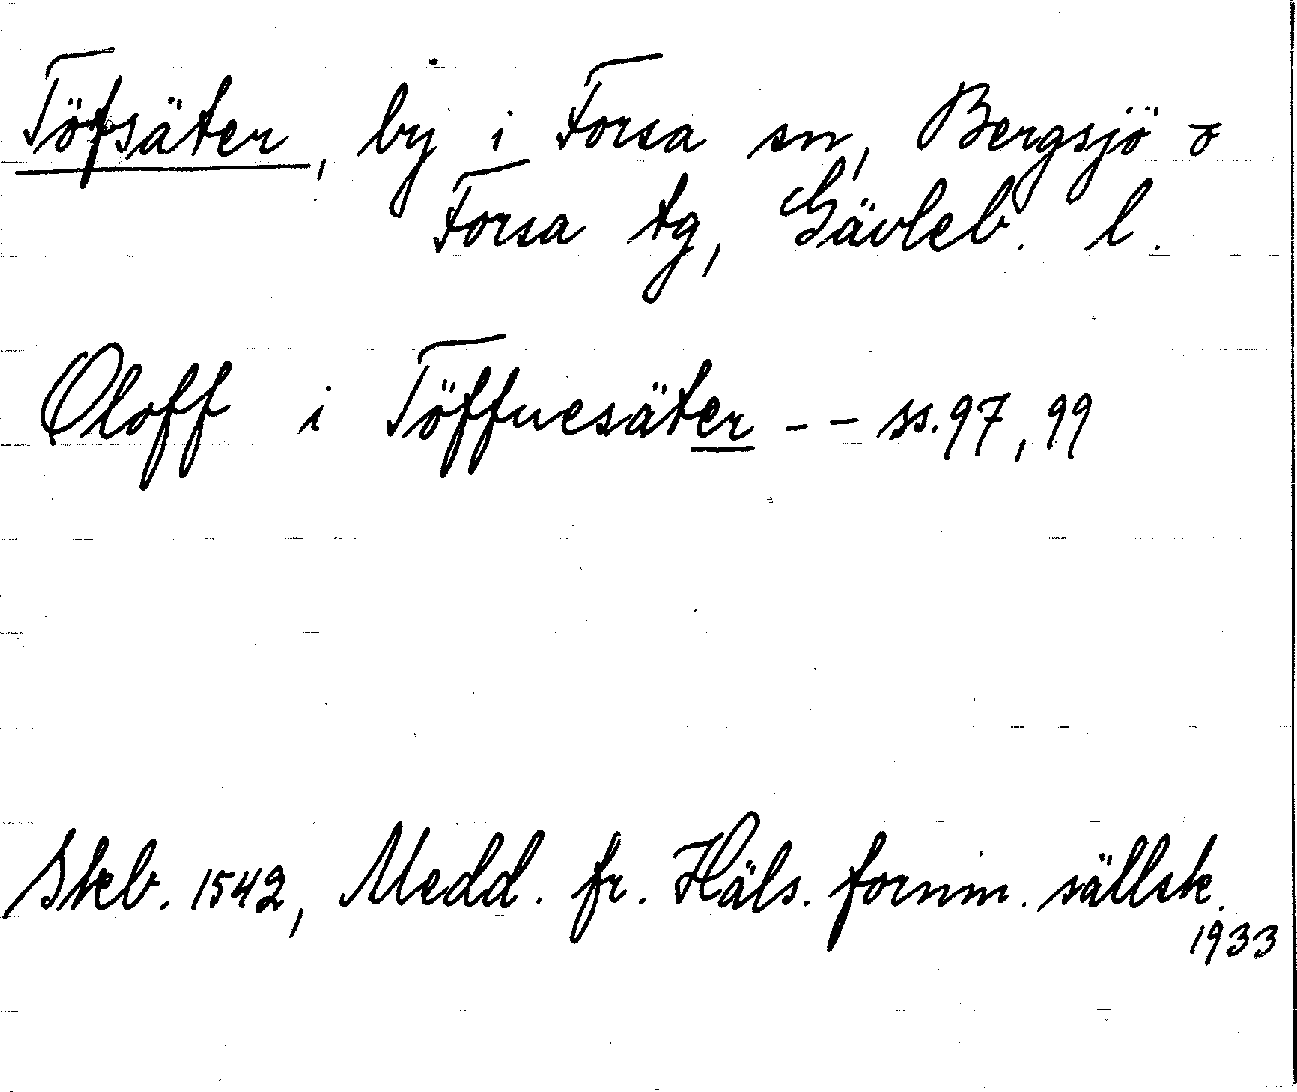 Töfsäter, by i Forsa sn, Bergsjö o
Forsa tg, Gävleb. l.
Oloff i Töffuesäter - - ss. 97, 99
Skb. 1542, Medd. fr. Häls. fornm. sällsk.
1933